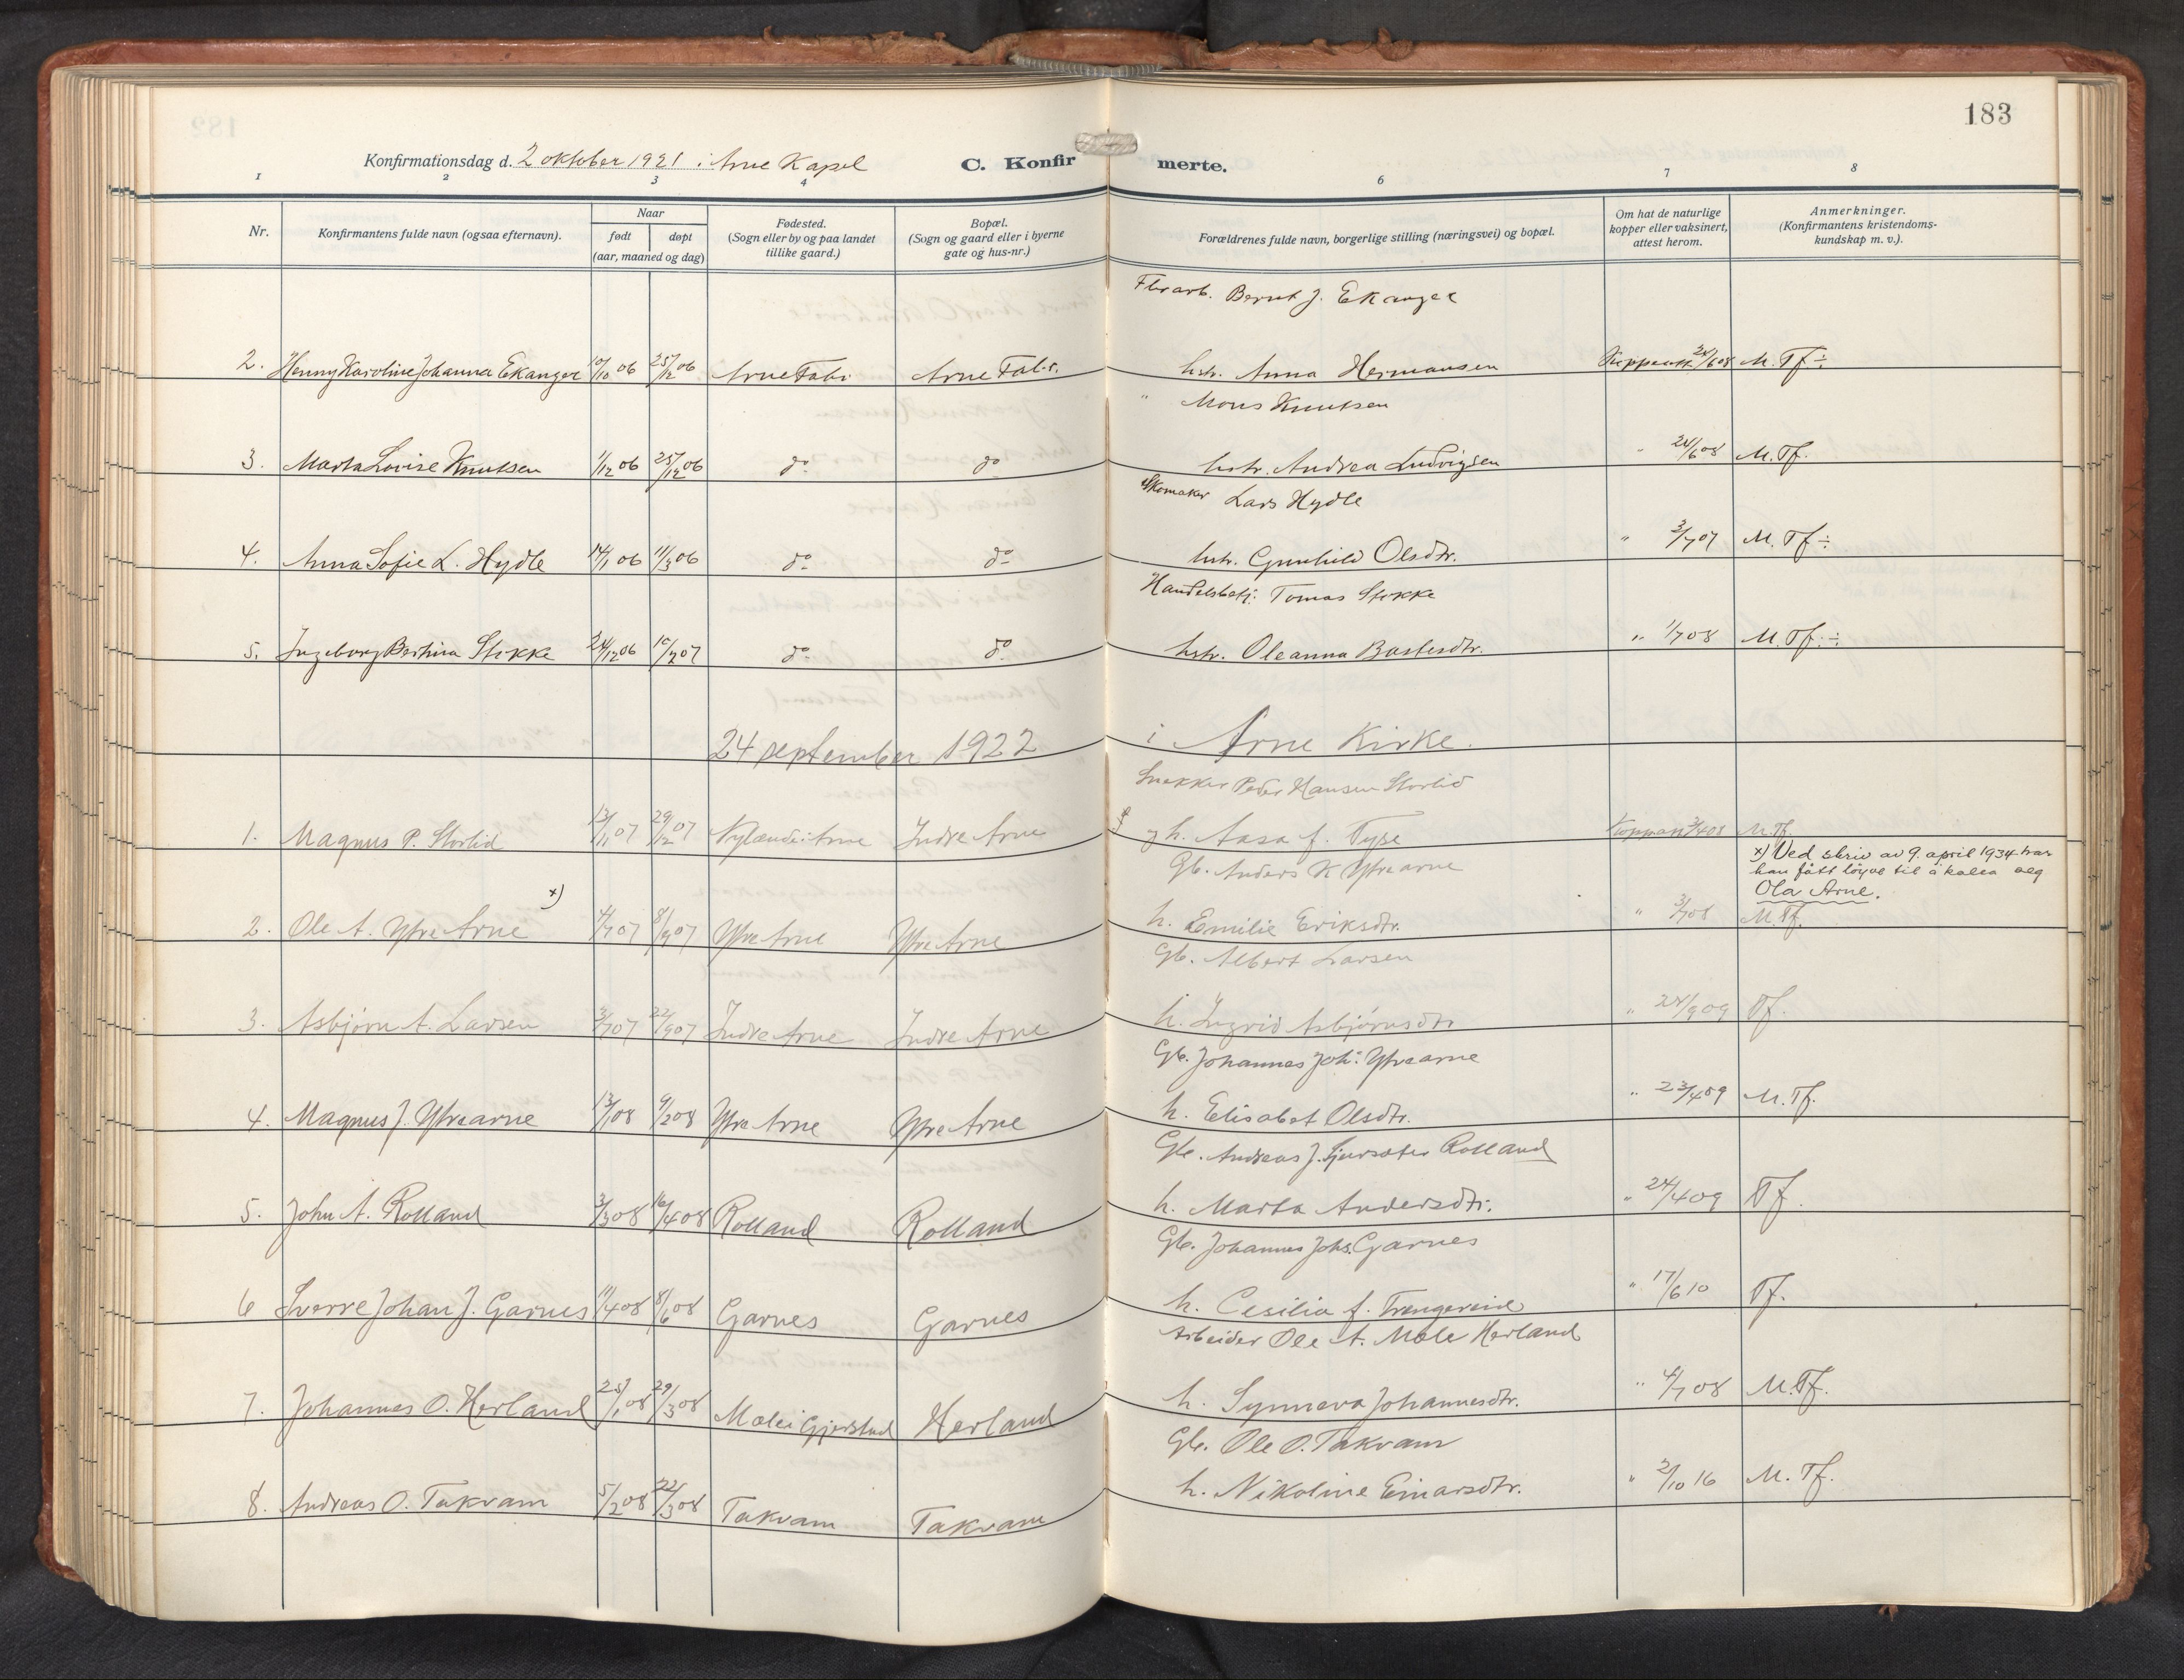 183
Konfirmationsdag d. 2 oktober 1921 i Arne Kapel
C. Konfirmerte.
1 2 3 4 6 7 8
Nr.
Konfirmantens fulde navn (ogsaa efternavn).
Naar
født døpt
(aar, maaned og dag)
Fødested.
(Sogn eller by og paa landet
tillike gaard.)
Bopæl.
(Sogn og gaard eller i byerne
gate og hus-nr.)
Forældrenes fulde navn, borgerlige stilling (næringsvei) og bopæl.
Om hat de naturlige
kopper eller vaksinert,
attest herom.
Anmerkninger.
(Konfirmantens kristendoms-
kundskap m. v.).
Bernt J. Ekanger
2. Henny Karoline Johanna Ekanger 10/10 06 25/12 06 Arne Fabr. Arne Fabr. hstr. Anna Hermansen Koppeatt. 24/6 08 M. Tf ÷
" Mons Knutsen
3. Marta Lovise Knutsen 1/12 06 25/12 06 do do hstr. Andrea Ludvigsen " 24/6 08 M. Tf.
Skomaker Lars Hydle
4. Anna Sofie L. Hydle 14/1 06 11/3 06 do do hstr. Gunhild Olsdtr. " 3/7 07 M. Tf ÷
Handelsbetj. Tomas Stokke
5. Ingeborg Bertina Stokke 24/12 06 10/2 07 do do hstr. Oleanna Bastesdtr. " 1/7 08 M. Tf. ÷
24 september 1922 i Arne Kirke.
Snekker Peder Hansen Storlid
1. Magnus P. Storlid 13/11 07 29/12 07 Nylænde i Arne Indre Arne h. Aasa f. Tysse 3/4 08 M. Tf.
Gb. Anders K Ytrearne
x) Ved skriv av 9. april 1934 har
han fått løyve til å kalla seg
Ola Arne.
2. Ole A. Ytre Arne x) 4/7 07 8/9 07 Ytre Arne Ytre Arne h. Emilie Eriksdtr. " 3/7 08 M. Tf.
Gb. Albert Larsen
3. Asbjørn A. Larsen 3/7 07 22/9 07 Indre Arne Indre Arne h. Ingrid Asbjørnsdtr " 24/9 09 Tf.
Gb. Johannes Joh: Ytrearne
4. Magnus J. Ytrearne 13/1 08 9/2 08 Ytre Arne Ytre Arne h. Elisabet Olsdtr. " 23/4 09 M. Tf.
Gb. Andreas J. Rolland
5. John A. Rolland 3/3 08 16/4 08 Rolland Rolland h. Marta Andersdtr. " 24/4 09 Tf.
Gb. Johannes Johs. Garnes
6 Sverre Johan J. Garnes 11/4 08 8/6 08 Garnes Garnes h. Cesilia f. Trengereid " 17/6 10 Tf.
Arbeider Ole A. Mæle Herland
7. Johannes O. Herland 25/1 08 29/3 08 Mæle i Gjerstad Herland h. Synneva Johannesdtr. " 4/7 08 M. Tf.
Gb. Ole O. Takvam
8. Andreas O. Takvam 5/2 08 22/3 08 Takvam Takvam h. Nikoline Einarsdtr. " 2/10 16 M. Tf.